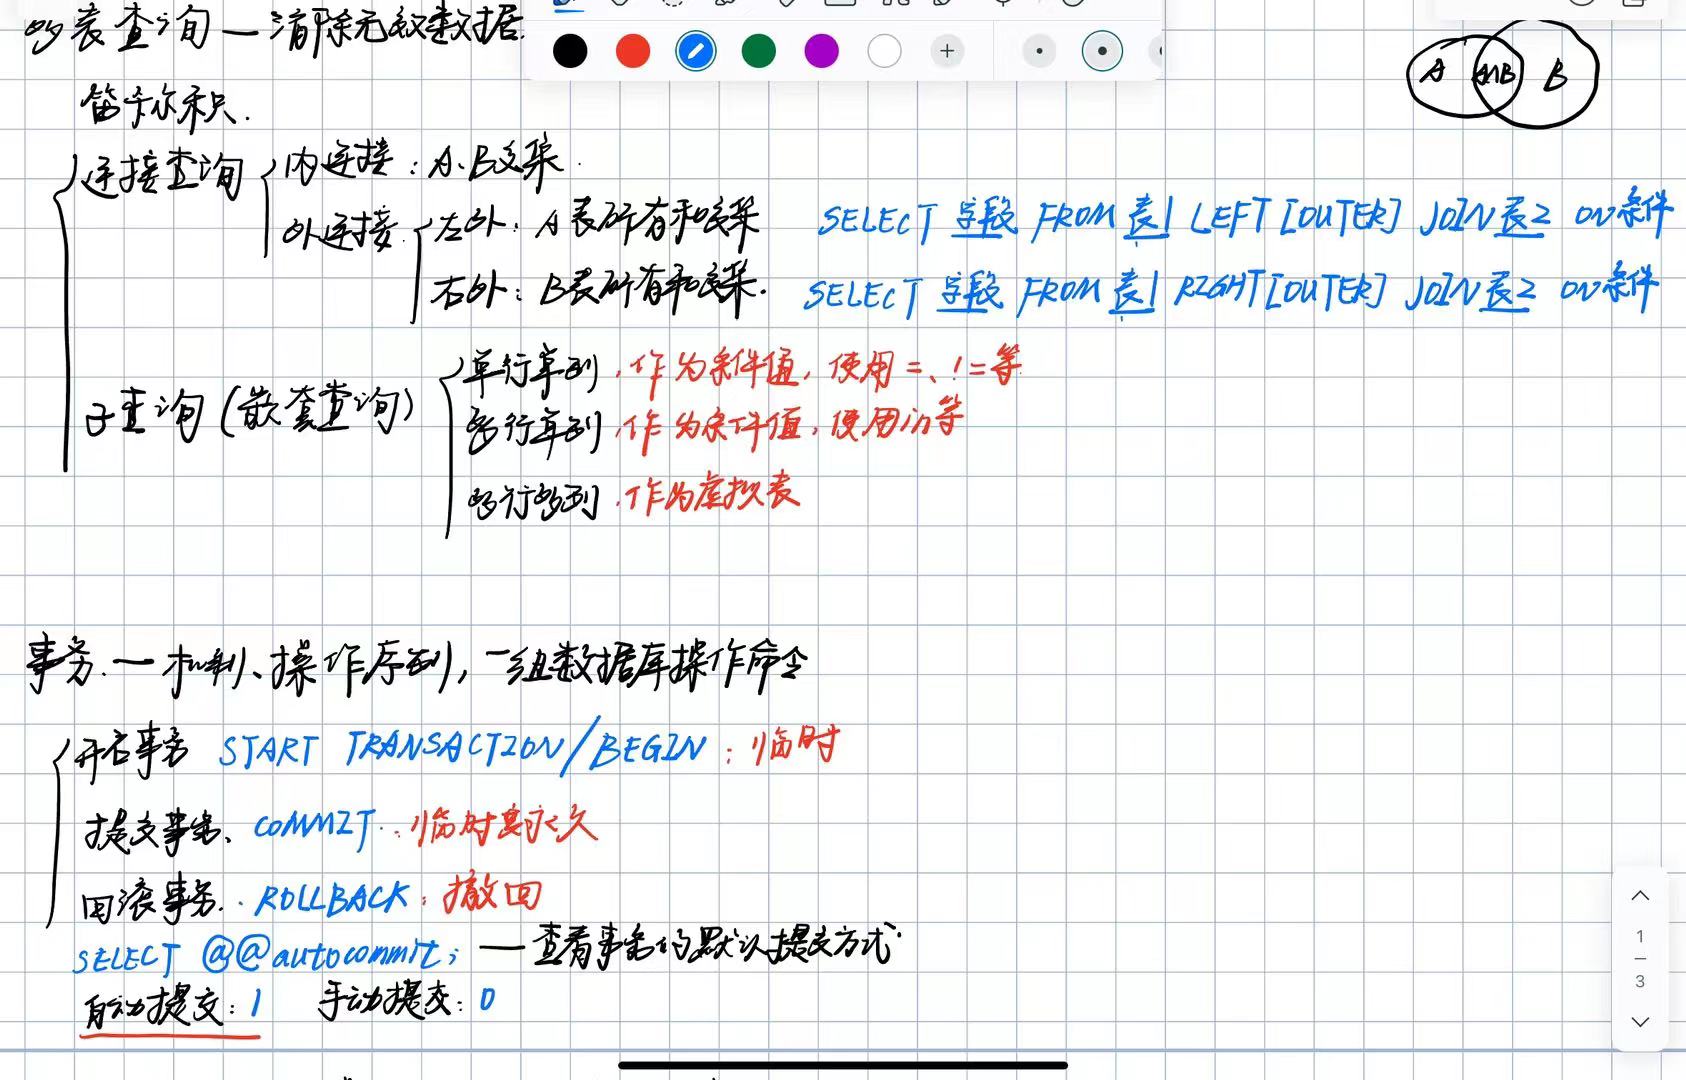 多表查询 — 消除无效数据.
A A∩B B
笛卡尔积.
连接查询 内连接: A、B交集.
外连接. 左外: A表所有和交集 SELECT 字段 FROM 表1 LEFT [OUTER] JOIN 表2 ON 条件
右外: B表所有和交集. SELECT 字段 FROM 表1 RIGHT [OUTER] JOIN 表2 ON 条件
子查询 (嵌套查询) 单行单列, 作为条件值, 使用=、!=等
多行单列, 作为条件值, 使用in等
多行多列, 作为虚拟表
事务. — 机制、操作序列, 一组数据库操作命令
开启事务 START TRANSACTION/BEGIN: 临时
提交事务、 COMMIT: 临时变永久
回滚事务. ROLLBACK: 撤回
SELECT @@autocommit; — 查看事务的默认提交方式.
自动提交: 1 手动提交: 0
1
3